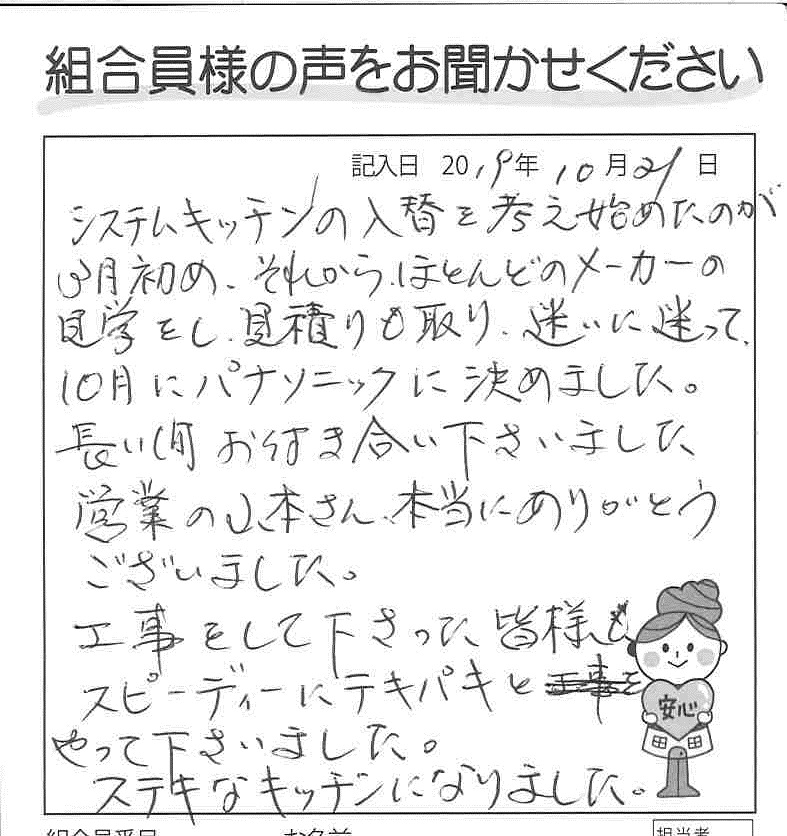 組合員様の声をお聞かせください
記入日 2019年 10月21日
システムキッチンの入替を考え始めたのが
3月初め、それから、ほとんどのメーカーの
見学をし、見積りも取り、迷いに迷って、
10月にパナソニックに決めました。
長い間お付き合い下さいました
営業の山本さん、本当にありがとう
ございました。
工事をして下さった皆様も
スピーディーにテキパキと
やって下さいました。
ステキなキッチンになりました。
安心
担当者